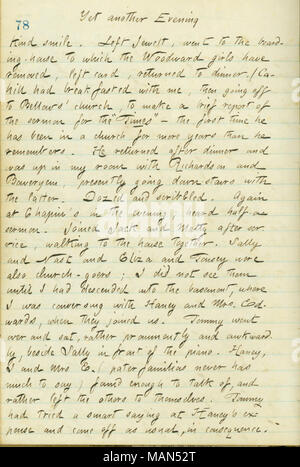 Yet another Evening
78
kind smile. Left Jewett, went to the board-
ing-house to which the Woodward girls have
removed, left card, returned to dinner. (Ca-
hill had breakfasted with me, then going off
to Bellows' church, to make a brief report of
the sermon for the "Times" — the first time he
has been in a church for more years than he
remembers. He returned after dinner and
was up in my room with Richardson and
Boweryem, presently going down stairs with
the latter. Dozed and scribbled. Again
at Chapin's in the evening, heard half a
sermon. Joined Jack and Matty after ser-
vice, walking to the house together. Sally
and Nast and Eliza and Tousey were
also church-goers; I did not see them
until I had descended into the basement, where
I was conversing with Haney and Mrs. Ed-
wards, when they joined us. Tommy went
over and sat, rather prominently and awkward-
ly, beside Sally in front of the piano. Haney,
I and Mrs E. (pater familias never has
much to say) found enough to talk of, and
rather left the others to themselves. Tommy
had tried a smart saying at Haney's ex-
pense and came off as usual, in consequence.
alamy
Image ID: MAN52T
www.alamy.com